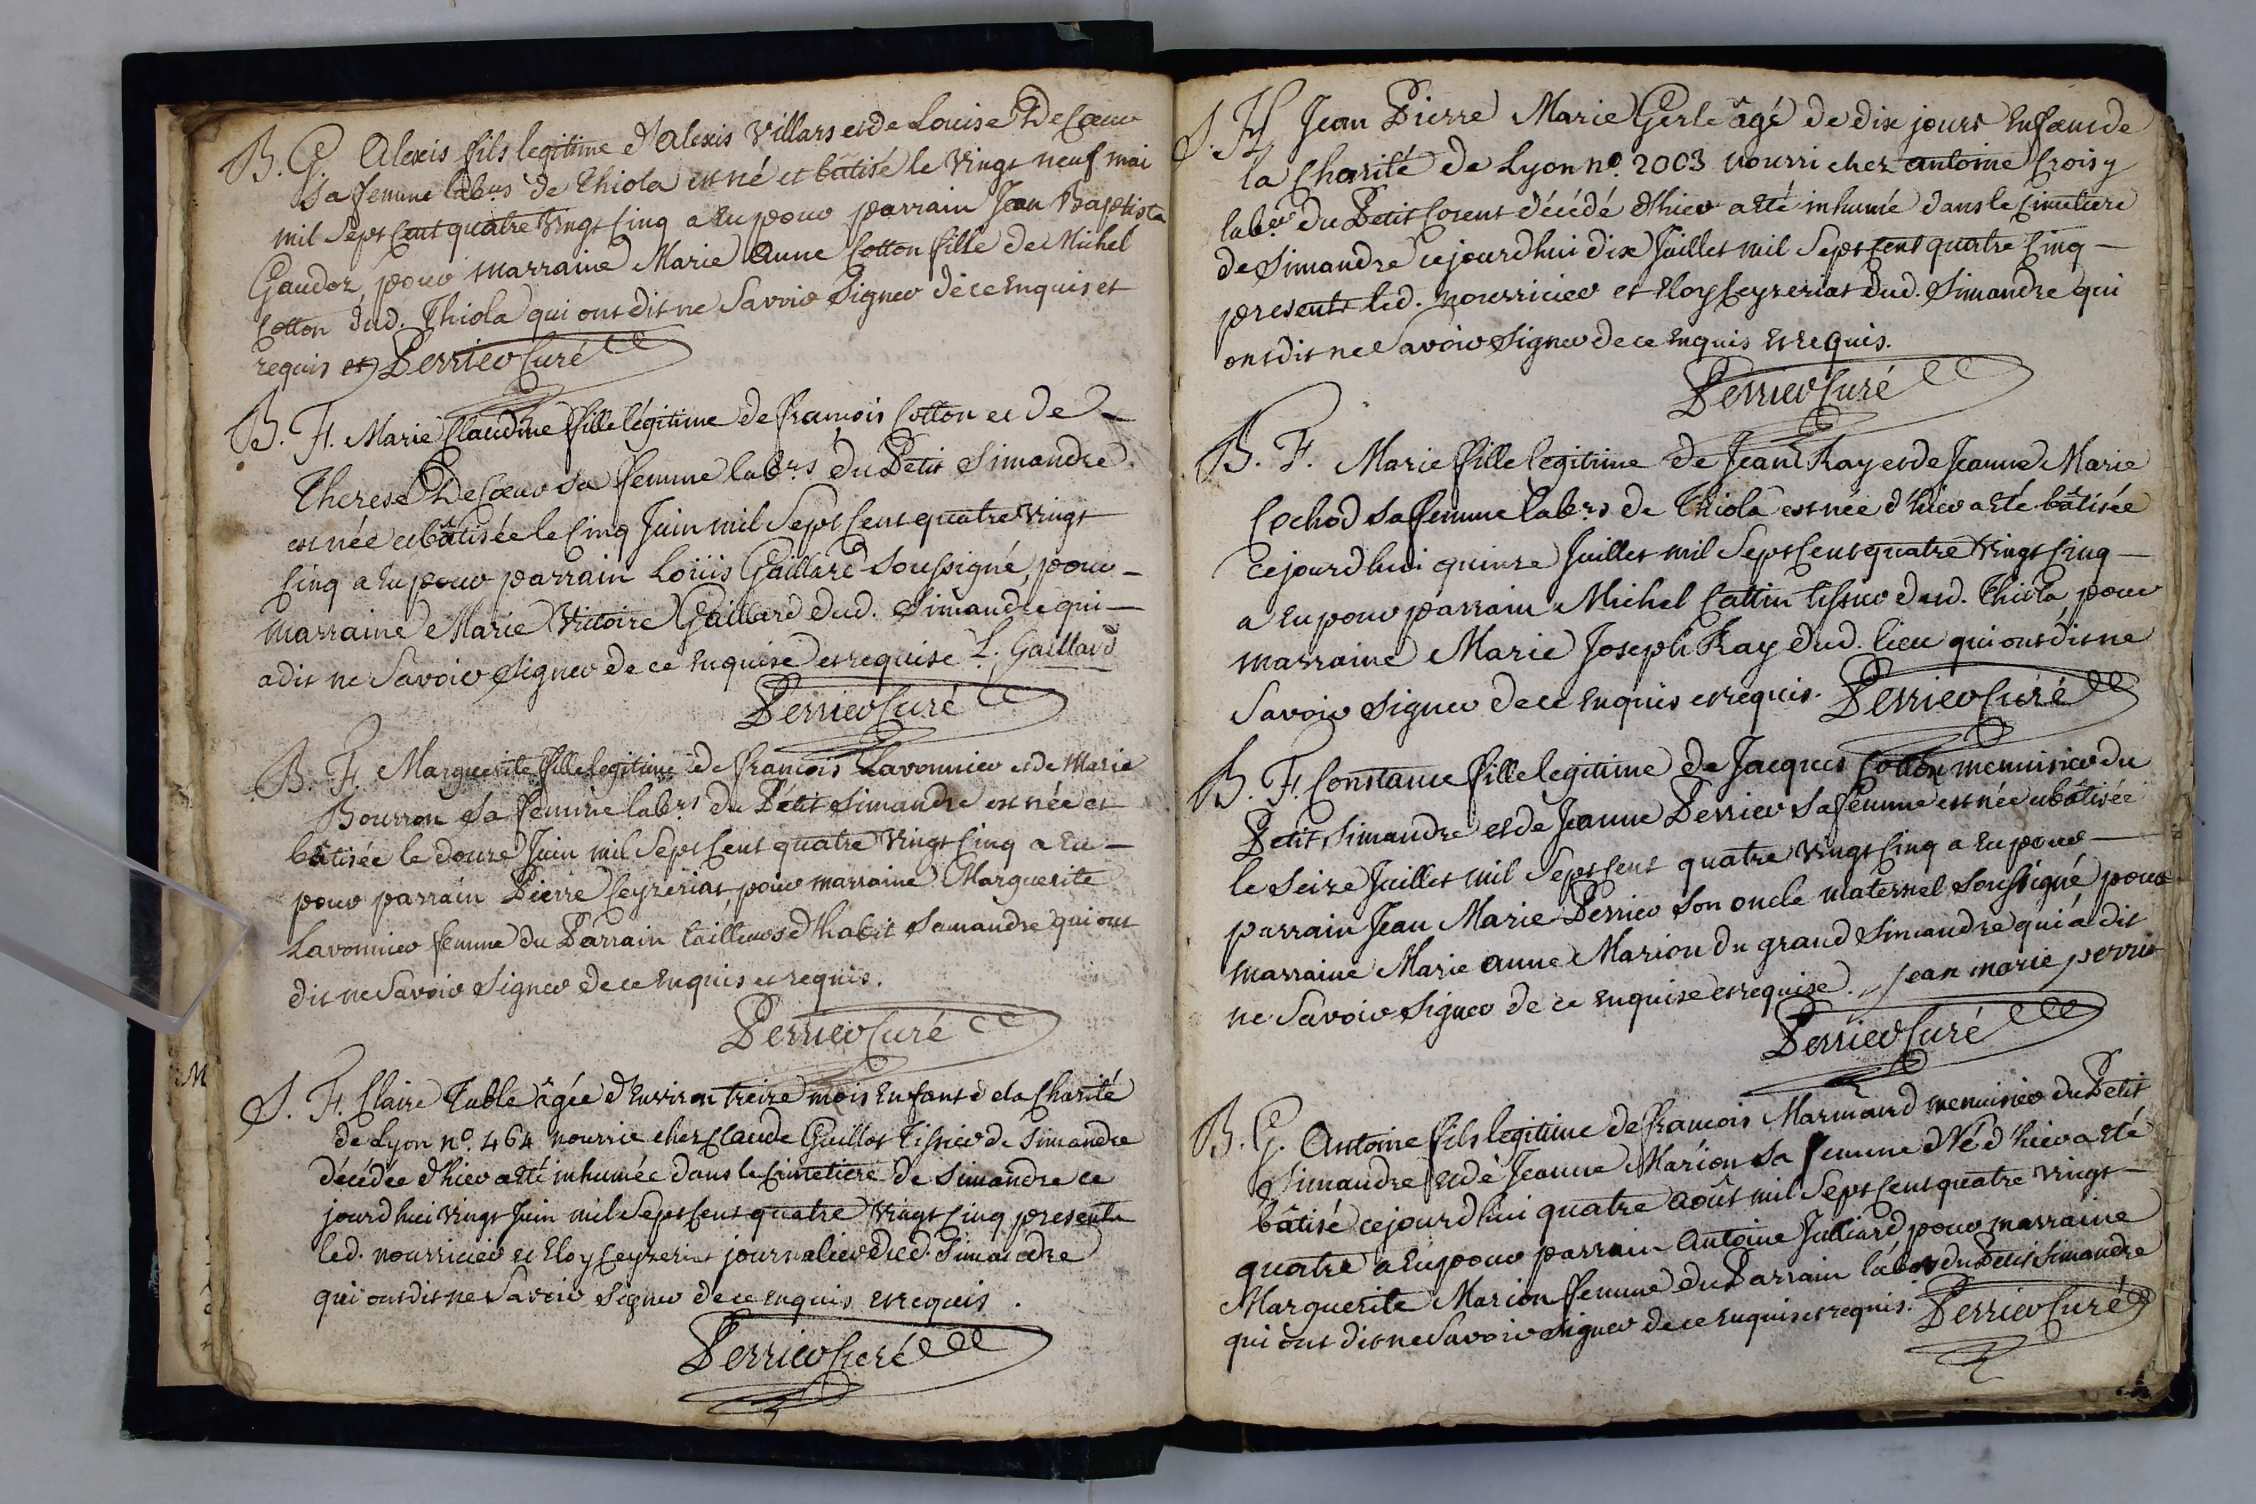 B. G. Alexis fils legitime d'alexis Villars et de Louise DeCoeur
sa femme labrs de Thiola est né et bâtisé le vingt neuf mai
mil Sept Cent quatre vingt Cinq a eu pour parrain Jean Baptiste
Gaudoz, pour marraine Marie Anne Cotton fille de Michel
Cotton dud. Thiola qui ont dit ne Savoir Signer de ce enquis et
requis et Perrier Curé
B. F. Marie Claudine fille légitime de françois Cotton et de
Therese DeCoeur sa femme labrs du Petit Simandre
est née et bâtisée le Cinq Juin mil Sept Cent quatre vingt
Cinq a eu pour parrain Loüis Gaillard Soussigné, pour
marraine Marie Victoire Gaillard dud. Simandre qui
a dit ne Savoir Signer de ce enquise et requise L. Gaillard
Perrier Curé
B. F. Marguerite fille legitime de françois Lavonnier et de Marie
Bourron sa femme labrs du Petit Simandre est née et
bâtisée le douze Juin mil Sept Cent quatre vingt Cinq a eu
pour parrain Pierre Ceyzeriat, pour marraine Marguerite
Lavonnier femme du Parrain tailleurs d'habit Samandre qui ont
dit ne Savoir Signer de ce enquis et requis.
Perrier Curé
S. F. Claire âgée d'Environ treize mois Enfant de la Charité
de Lyon no. 464 nourrie chez Claude Guillot Tissier de Simandre
décédée d'hier a eté inhumée dans le Cimetiere de Simandre ce
jourd'hui vingt Juin mil Sept Cent quatre vingt Cinq presents
led. nourricier et Eloy Ceyzeriat journalier dud. Simandre
qui ont dit ne Savoir Signer de ce enquis et requis.
Perrier Curé
S. Jean Pierre Marie Gerle âgé de dix jours Enfant de
la Charité de Lyon no. 2003 nourri chez antoine Croisy
labr du Petit Corent décédé d'hier a eté inhumé dans le Cimetiere
de Simandre ce jourd'hui dix Juillet mil Sept Cent quatre Cinq
presents led. nourricier et Eloy Ceyzeriat dud. Simandre qui
ont dit ne Savoir Signer de ce enquis et requis.
Perrier Curé
B. F. Marie fille legitime de Jean Ray et de Jeanne Marie
Cochod sa femme labrs de Thiola est née d'hier a eté bâtisée
ce jourd'hui quinze Juillet mil Sept Cent quatre vingt Cinq
a eu pour parrain Michel Cattin tissier dud. Thiola pour
marraine Marie Joseph Ray dud. lieu qui ont dit ne
Savoir Signer de ce enquis et requis. Perrier Curé
B. F. Constance fille legitime de Jacques Cotton menuisier du
Petit Simandre et de Jeanne Perrier sa femme est née et bâtisée
le Seize Juillet mil Sept Cent quatre vingt Cinq a eu pour
parrain Jean Marie Perrier Son oncle maternel Soussigné pour
marraine Marie anne Marion du grand Simandre qui a dit
ne Savoir Signer de ce enquise et requise. jean marie perrier
Perrier Curé
B. G. Antoine fils legitime de françois Marmand menuisier du Petit
Simandre et de Jeanne Marion sa femme Né d'hier a eté
bâtisé ce jourd'hui quatre août mil Sept Cent quatre vingt
quatre a eu pour parrain Antoine Julliard pour marraine
Marguerite Marion femme du Parrain labrs du Petit Simandre
qui ont dit ne Savoir Signer de ce enquis et requis. Perrier Curé